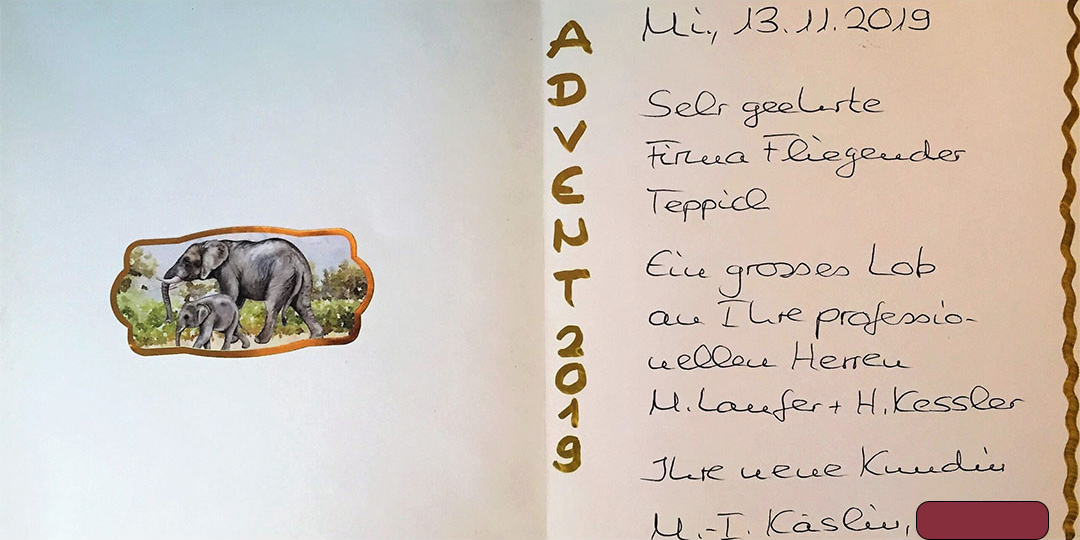 ADVENT 2019
Mi., 13.11.2019
Sehr geehrte
Firma Fliegender
Teppich
Ein grosses Lob
an Ihre professio-
nellen Herren
M. Laufer + H. Kessler
Ihre neue Kundin
M.-I. Käslin,